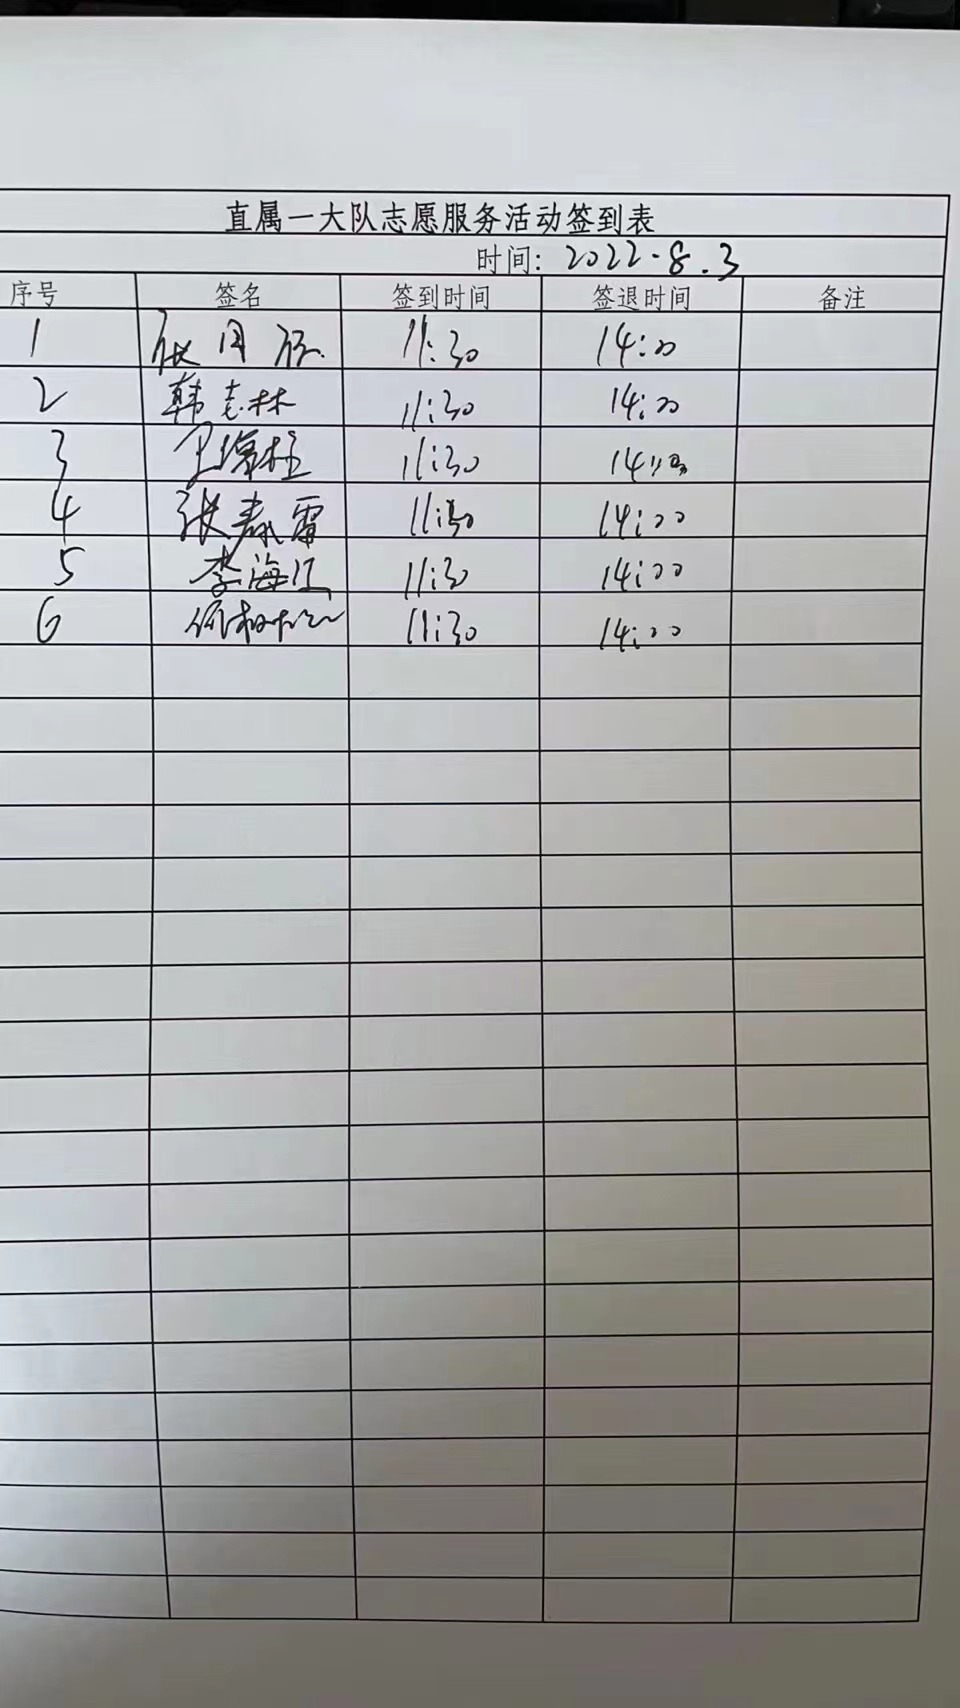 直属一大队志愿服务活动签到表
时间: 2022.8.3
序号 签名 签到时间 签退时间 备注
1 11:30 14:00
2 韩志林 11:30 14:00
3 11:30 14:00
4 张春雷 11:30 14:00
5 李海江 11:30 14:00
6 11:30 14:00